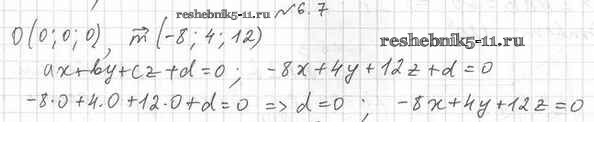 reshebnik5-11.ru №6.7
O(0; 0; 0), m⃗(-8; 4; 12) reshebnik5-11.ru
ax+by+cz+d=0; -8x+4y+12z+d=0
-8·0+4·0+12·0+d=0 => d=0; -8x+4y+12z=0